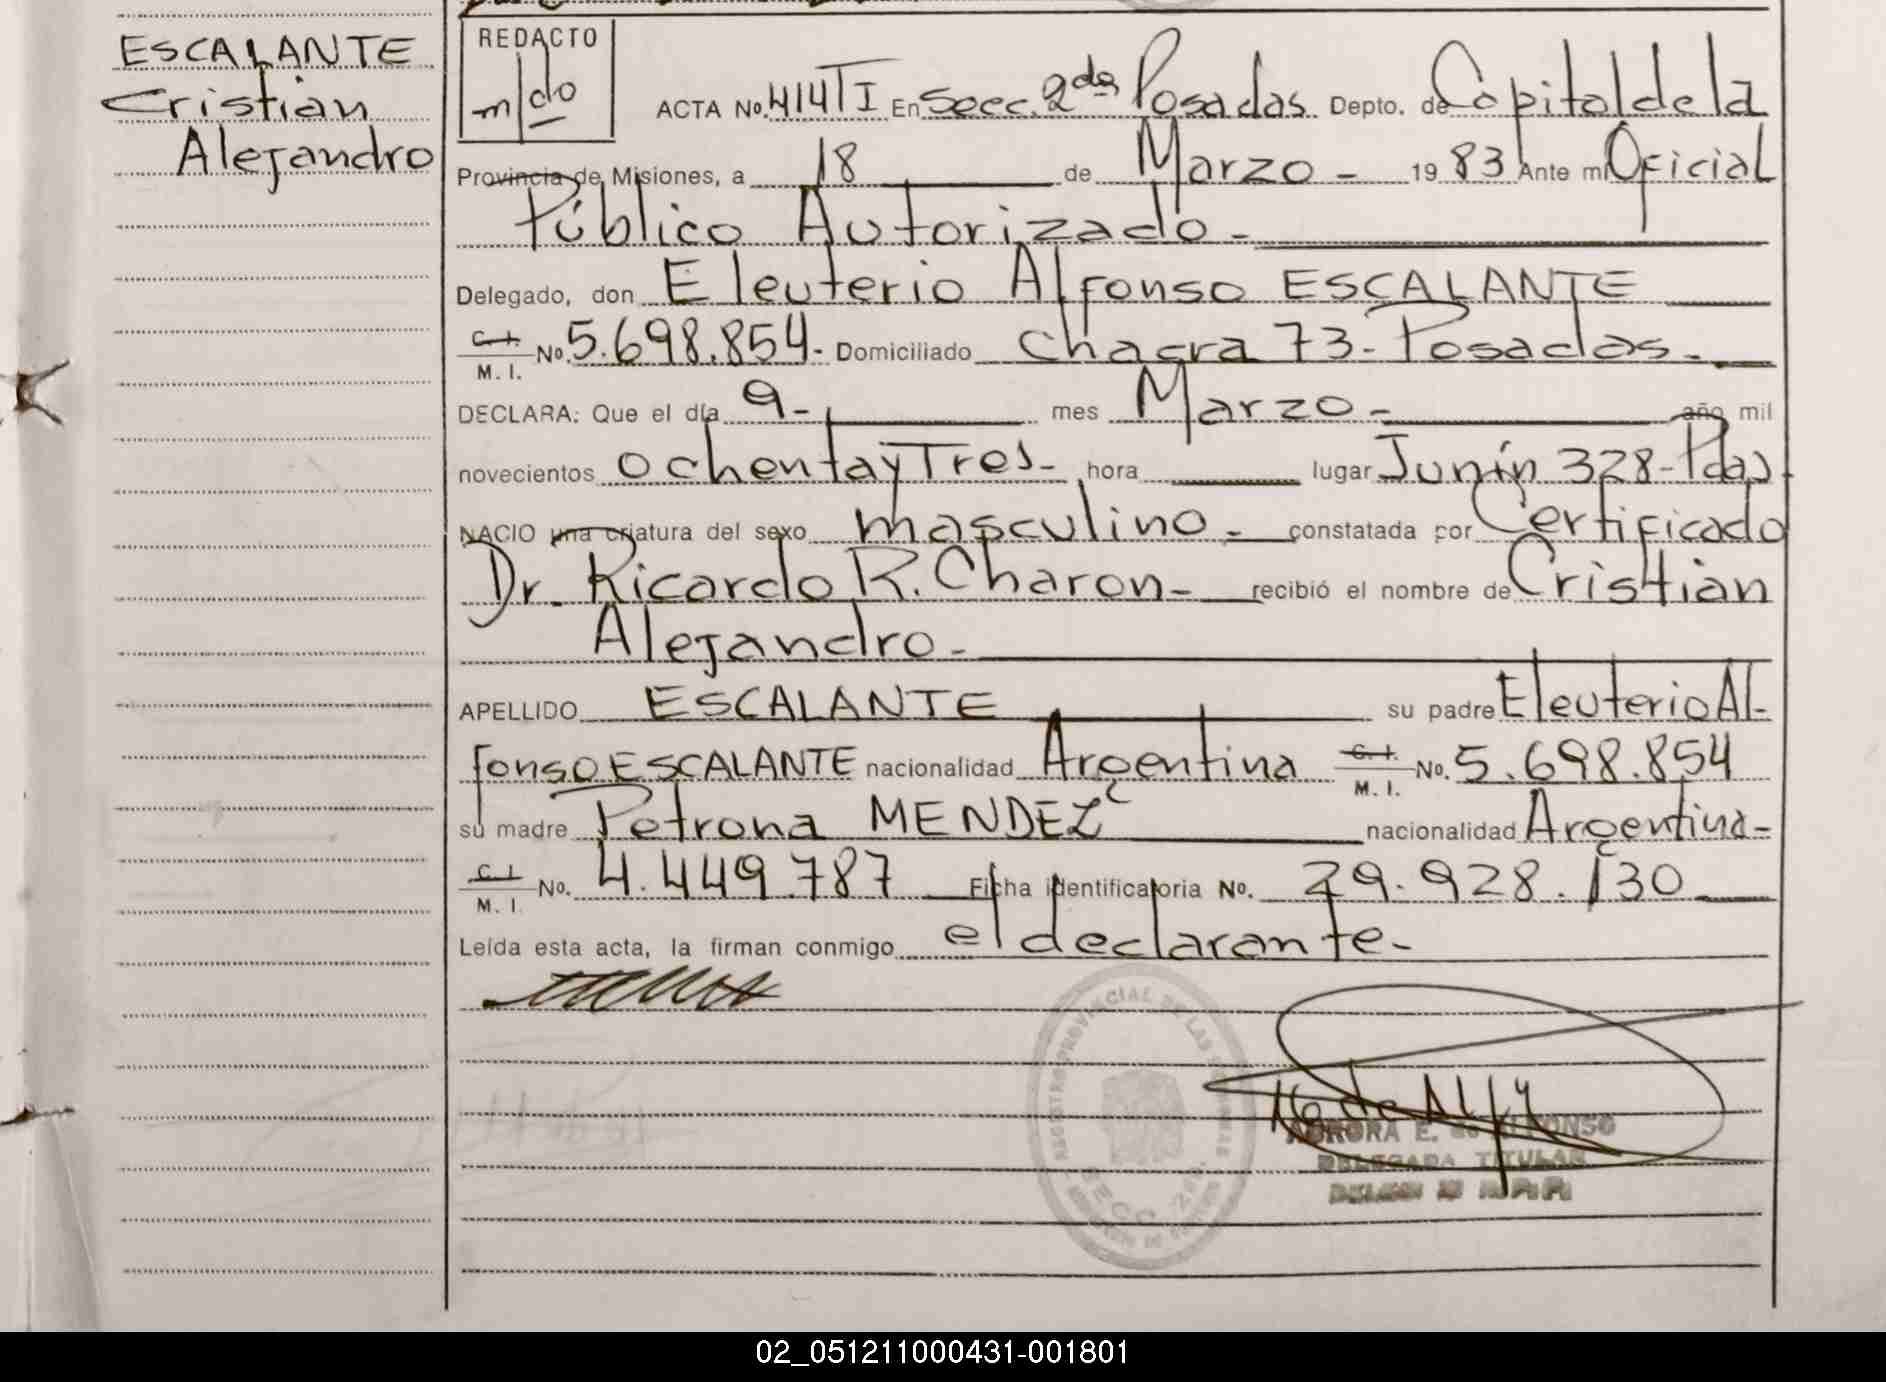 ESCALANTE
Cristian
Alejandro
REDACTO
m/do
ACTA No. 414 TI En Secc. 2da Posadas Depto. de Capital de la
Provincia de Misiones, a 18 de Marzo - 1983 Ante mi Oficial
Público Autorizado -
Delegado, don Eleuterio Alfonso ESCALANTE
C. I. / M. I. No. 5.698.854- Domiciliado Chacra 73- Posadas -
DECLARA: Que el día 9- mes Marzo - año mil
novecientos ochenta y Tres- hora lugar Junín 328-Pdas
NACIO una criatura del sexo masculino - constatada por Certificado
Dr. Ricardo R. Charon - recibió el nombre de Cristian
Alejandro -
APELLIDO ESCALANTE su padre Eleuterio Al-
fonso ESCALANTE nacionalidad Argentina C. I. / M. I. No. 5.698.854
su madre Petrona MENDEZ nacionalidad Argentina-
C. I. / M. I. No. 4.449.787 Ficha identificatoria No. 29.928.130
Leída esta acta, la firman conmigo el declarante-
REGISTRO PROVINCIAL DE LAS PERSONAS
SECC. 2da.
AURORA E. de ALFONSO
DELEGADA TITULAR
02_051211000431-001801